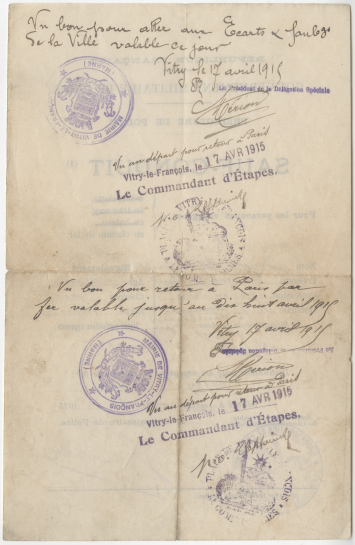 Vu bon pour aller aux Ecarts & faubgs
de la Ville valable ce jour
Vitry le 17 avril 1915
Le Président de la Délégation Spéciale
MAIRIE DE VITRY-LE-FRANÇOIS
(MARNE)
Vu au départ pour retour à Paris
Vitry-le-François, le 17 AVR 1915
Le Commandant d'Étapes.
p. o.
VITRY
Vu bon pour retour à Paris par
fer valable jusqu'au dix huit avril 1915
Vitry 17 avril 1915
MAIRIE DE VITRY-LE-FRANÇOIS
(MARNE)
Vu au départ pour retour à Paris
Vitry-le-François, le 17 AVR 1915
Le Commandant d'Étapes.